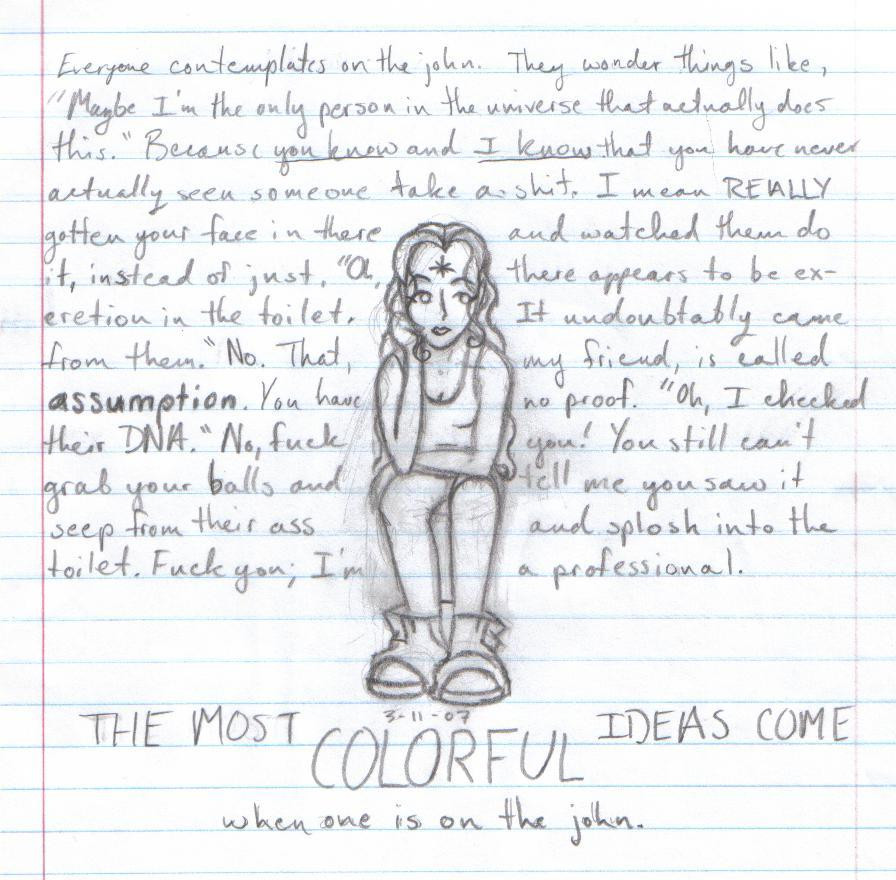 Everyone contemplates on the john. They wonder things like,
"Maybe I'm the only person in the universe that actually does
this." Because you know and I know that you have never
actually seen someone take a shit. I mean REALLY
gotten your face in there and watched them do
it, instead of just, "Oh, there appears to be ex-
cretion in the toilet. It undoubtably came
from them." No. That, my friend, is called
assumption. You have no proof. "Oh, I checked
their DNA." No, fuck you! You still can't
grab your balls and tell me you saw it
seep from their ass and splosh into the
toilet. Fuck you; I'm a professional.
3-11-07
THE MOST COLORFUL IDEAS COME
when one is on the john.